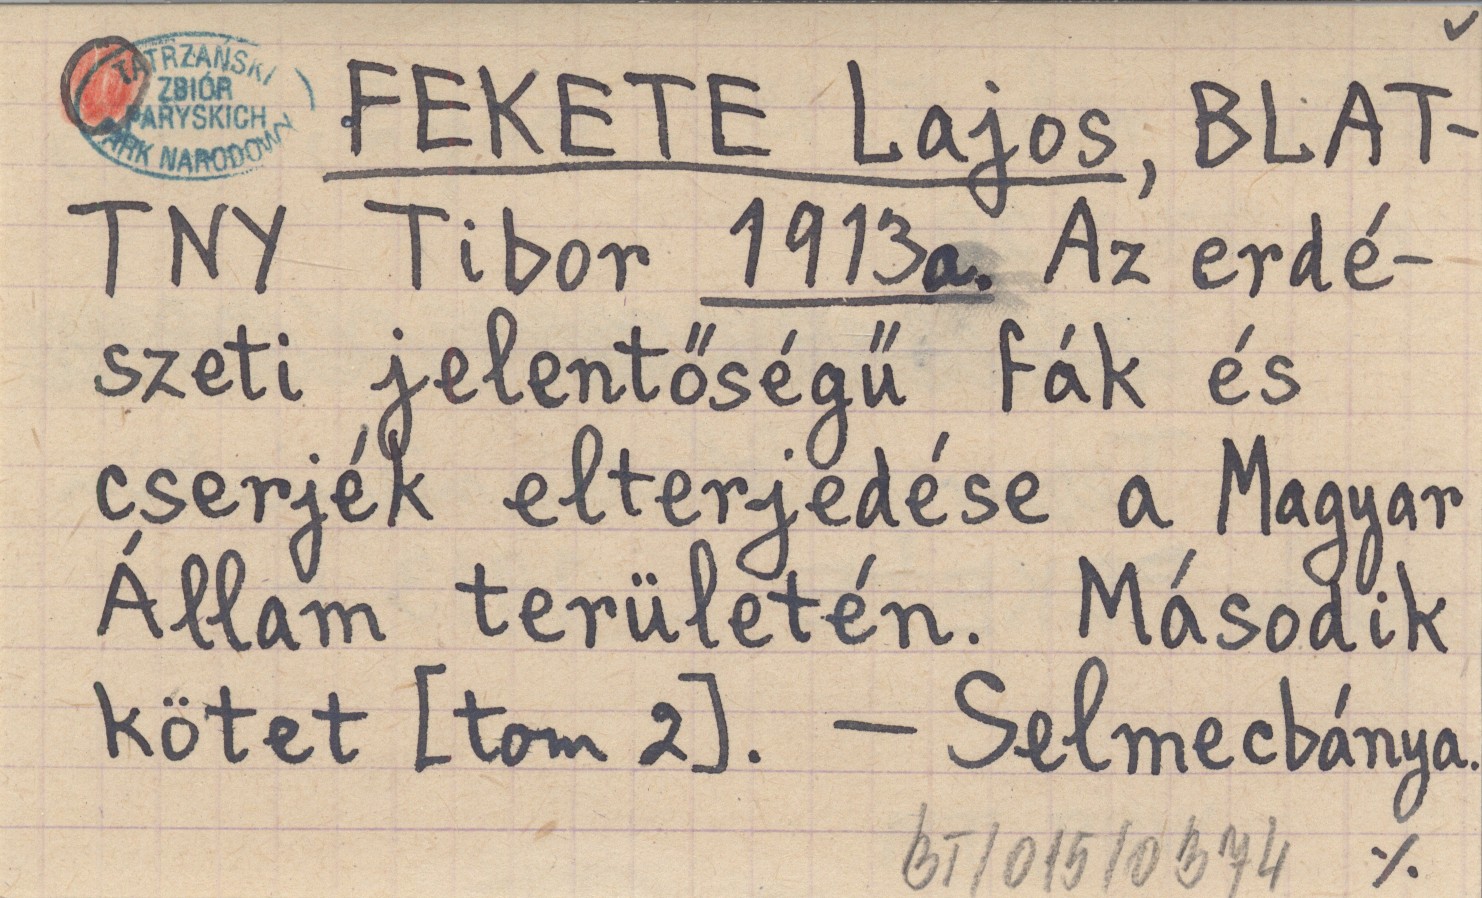 ✓
TATRZAŃSKI
ZBIÓR
PARYSKICH
PARK NARODOWY
FEKETE Lajos, BLAT-
TNY Tibor 1913a. Az erdé-
szeti jelentőségű fák és
cserjék elterjedése a Magyar
Állam területén. Második
kötet [tom 2]. — Selmecbánya.
BT/015/0374
·/.